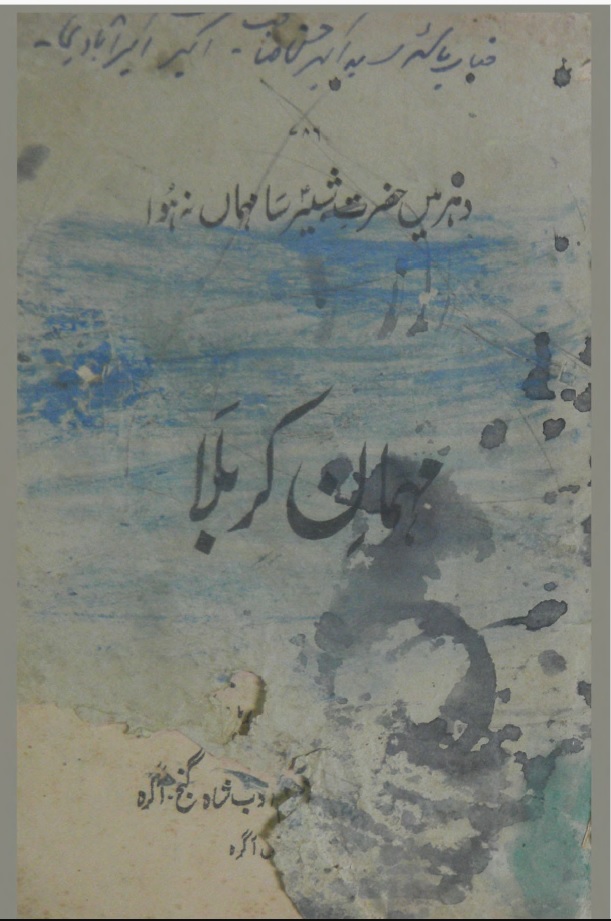 جناب سید اکبر حسن صاحب - اکبر اکبرآبادی -
۷۸۶
دہر میں حضرتِ شبیرؑ سا مہماں نہ ہُوا
مہمانِ کربلَا
ادب شاہ گنج۔ آگرہ
آگرہ